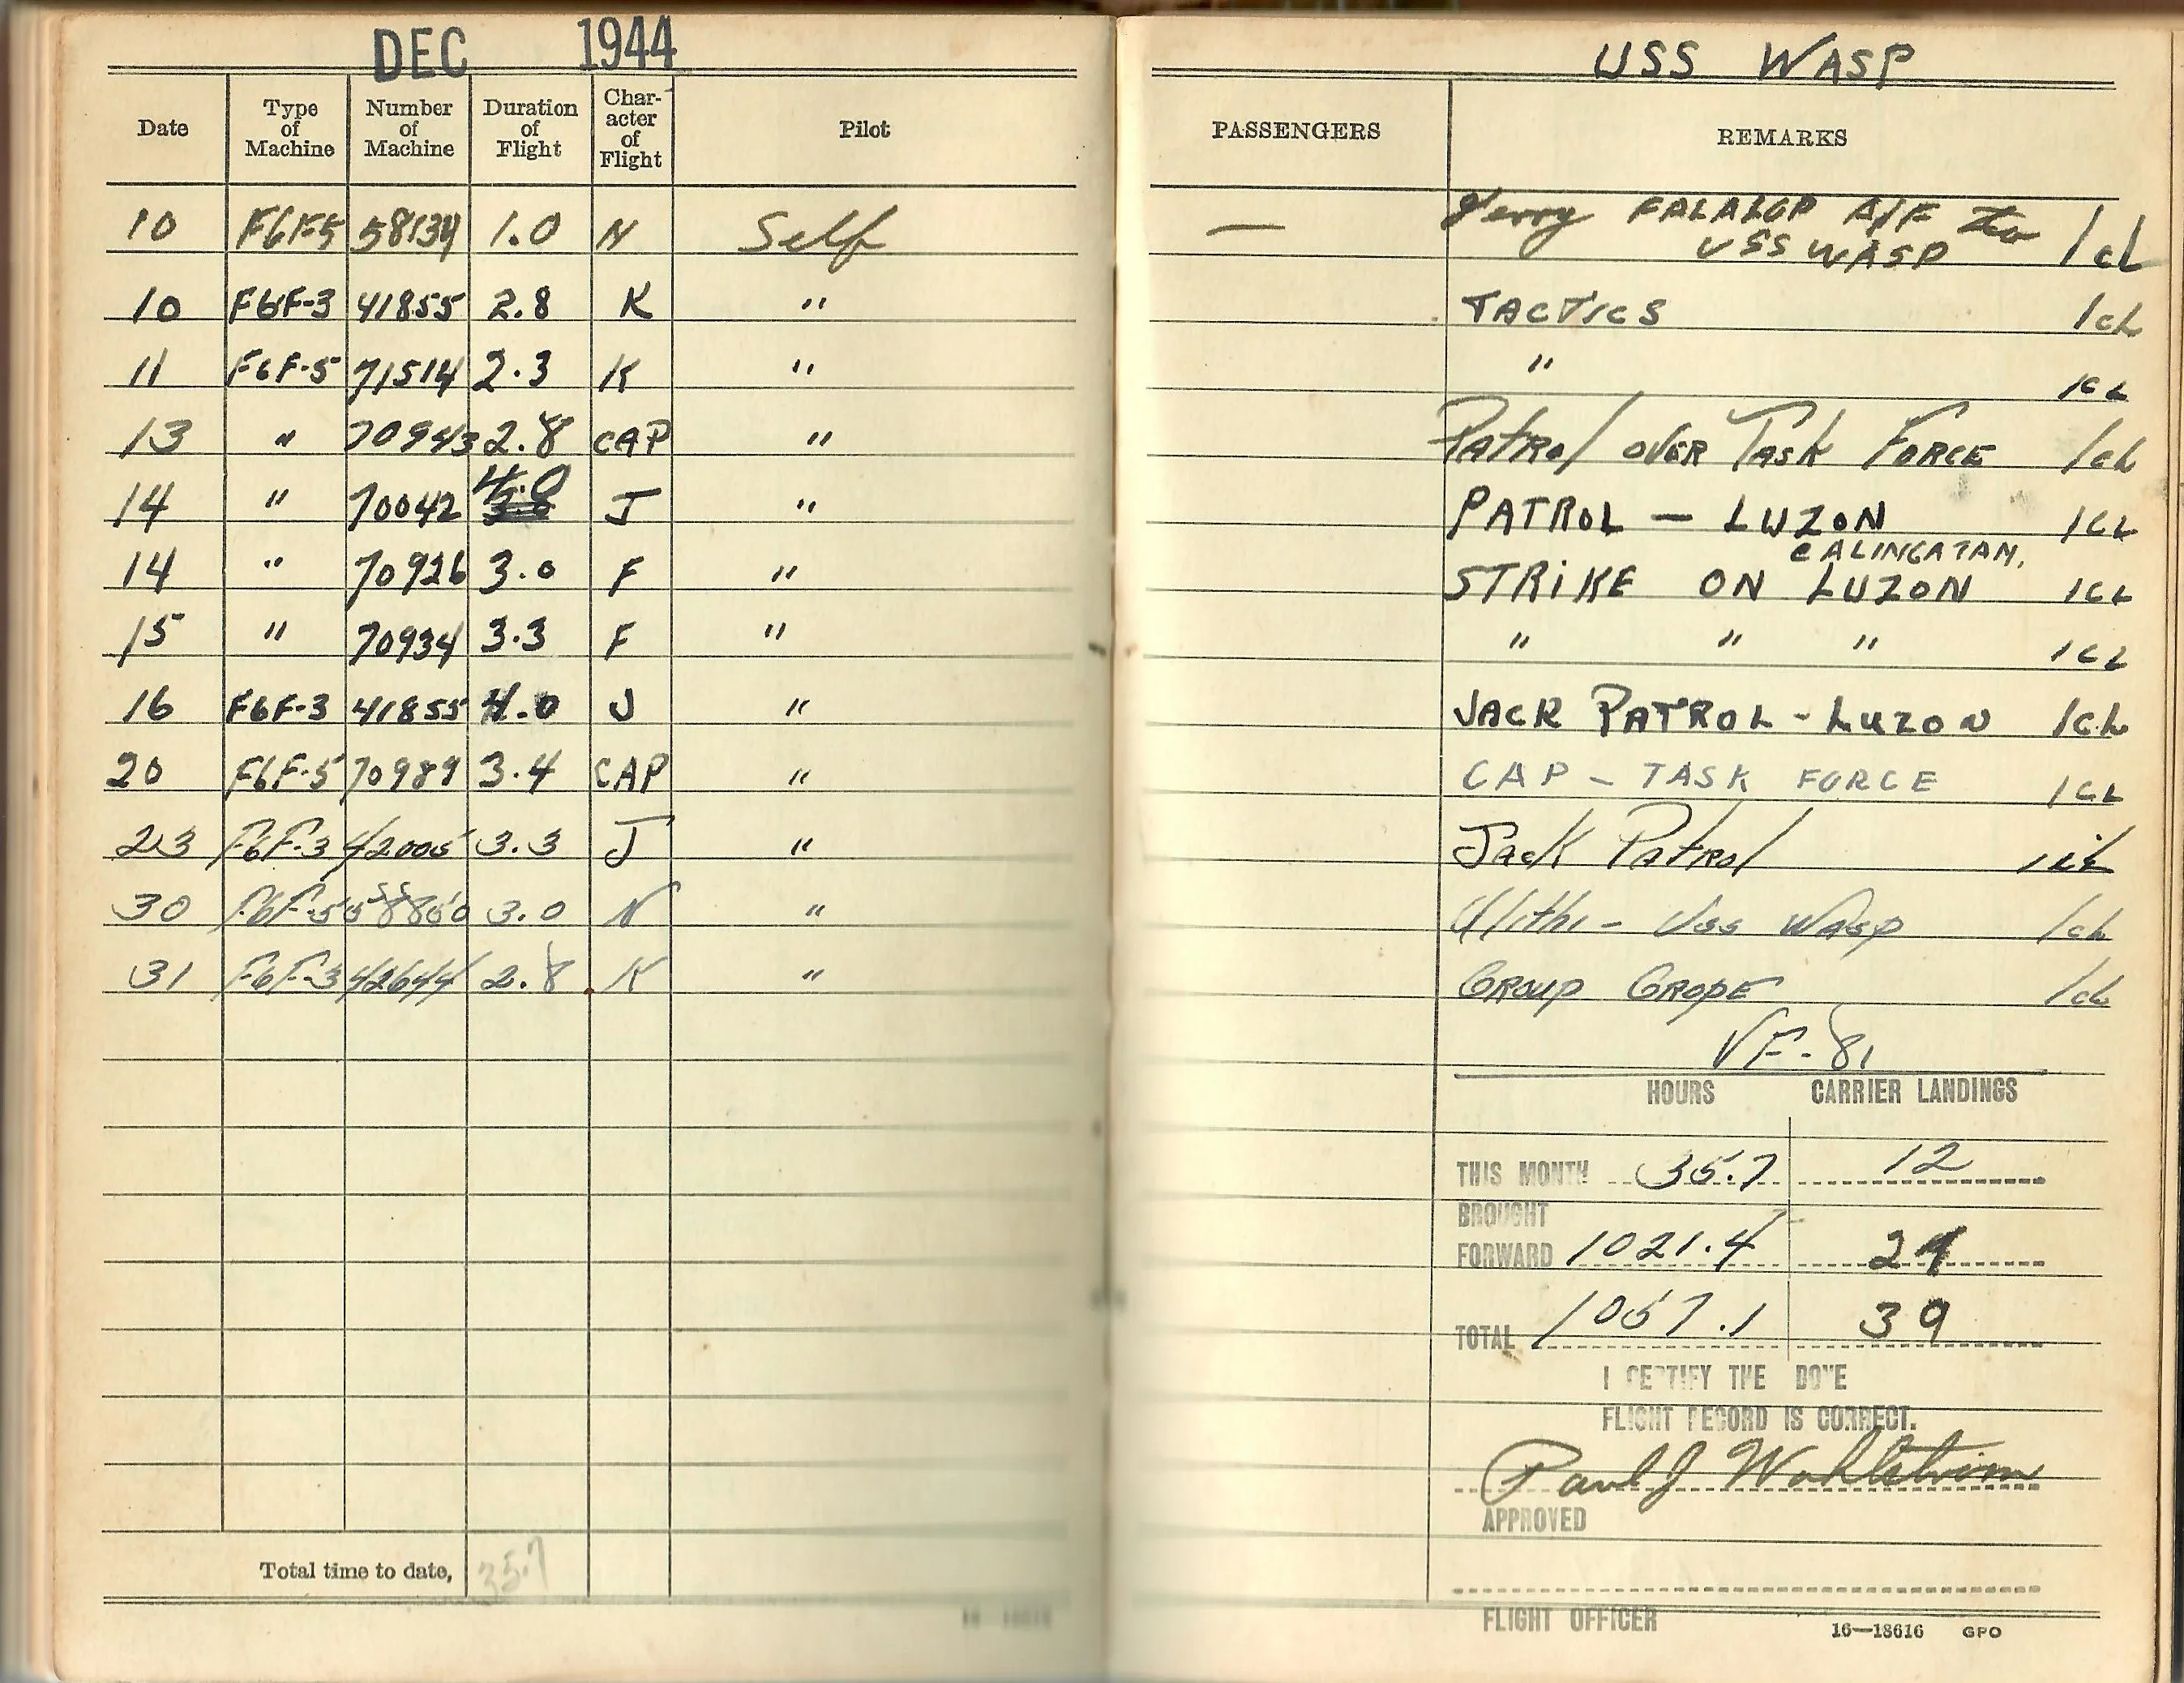 DEC 1944
USS WASP
Date Type of Machine Number of Machine Duration of Flight Char-acter of Flight Pilot PASSENGERS REMARKS
10 F6F-5 58134 1.0 N Self — Ferry FALALOP A/F to USS WASP 1cL
10 F6F-3 41855 2.8 K " TACTICS 1cL
11 F6F-5 71514 2.3 K " " 1CL
13 " 70943 2.8 CAP " Patrol over Task Force 1cL
14 " 70042 4.0 J " PATROL — LUZON 1CL
14 " 70926 3.0 F " STRIKE ON LUZON 1CL
15 " 70934 3.3 F " " " " 1CL
16 F6F-3 41855 4.0 J " JACK PATROL - LUZON 1CL
20 F6F-5 70989 3.4 CAP " CAP - TASK FORCE 1CL
23 F6F-3 42005 3.3 J " Jack Patrol
30 F6F-5 3.0 N " Ulithi - USS Wasp 1cL
31 F6F-3 42644 2.8 K " Group Grope 1cL
VF-81
HOURS CARRIER LANDINGS
THIS MONTH 35.7 12
BROUGHT
FORWARD 1021.4
TOTAL 1057.1 39
I CERTIFY THE BOVE
FLIGHT RECORD IS CORRECT.
Paul J Wahlstrom
APPROVED
Total time to date, 35.7
FLIGHT OFFICER
16—18616 GPO